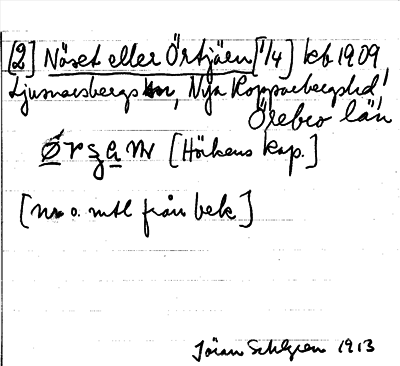 [2] Näset eller Örtjärn [1/4] kb 1909
Ljusnarsbergs kn, Nya Kopparbergs hd,
Örebro län
[Hörkens kap.]
[nr o. mtl från bek]
Jöran Sahlgren 1913